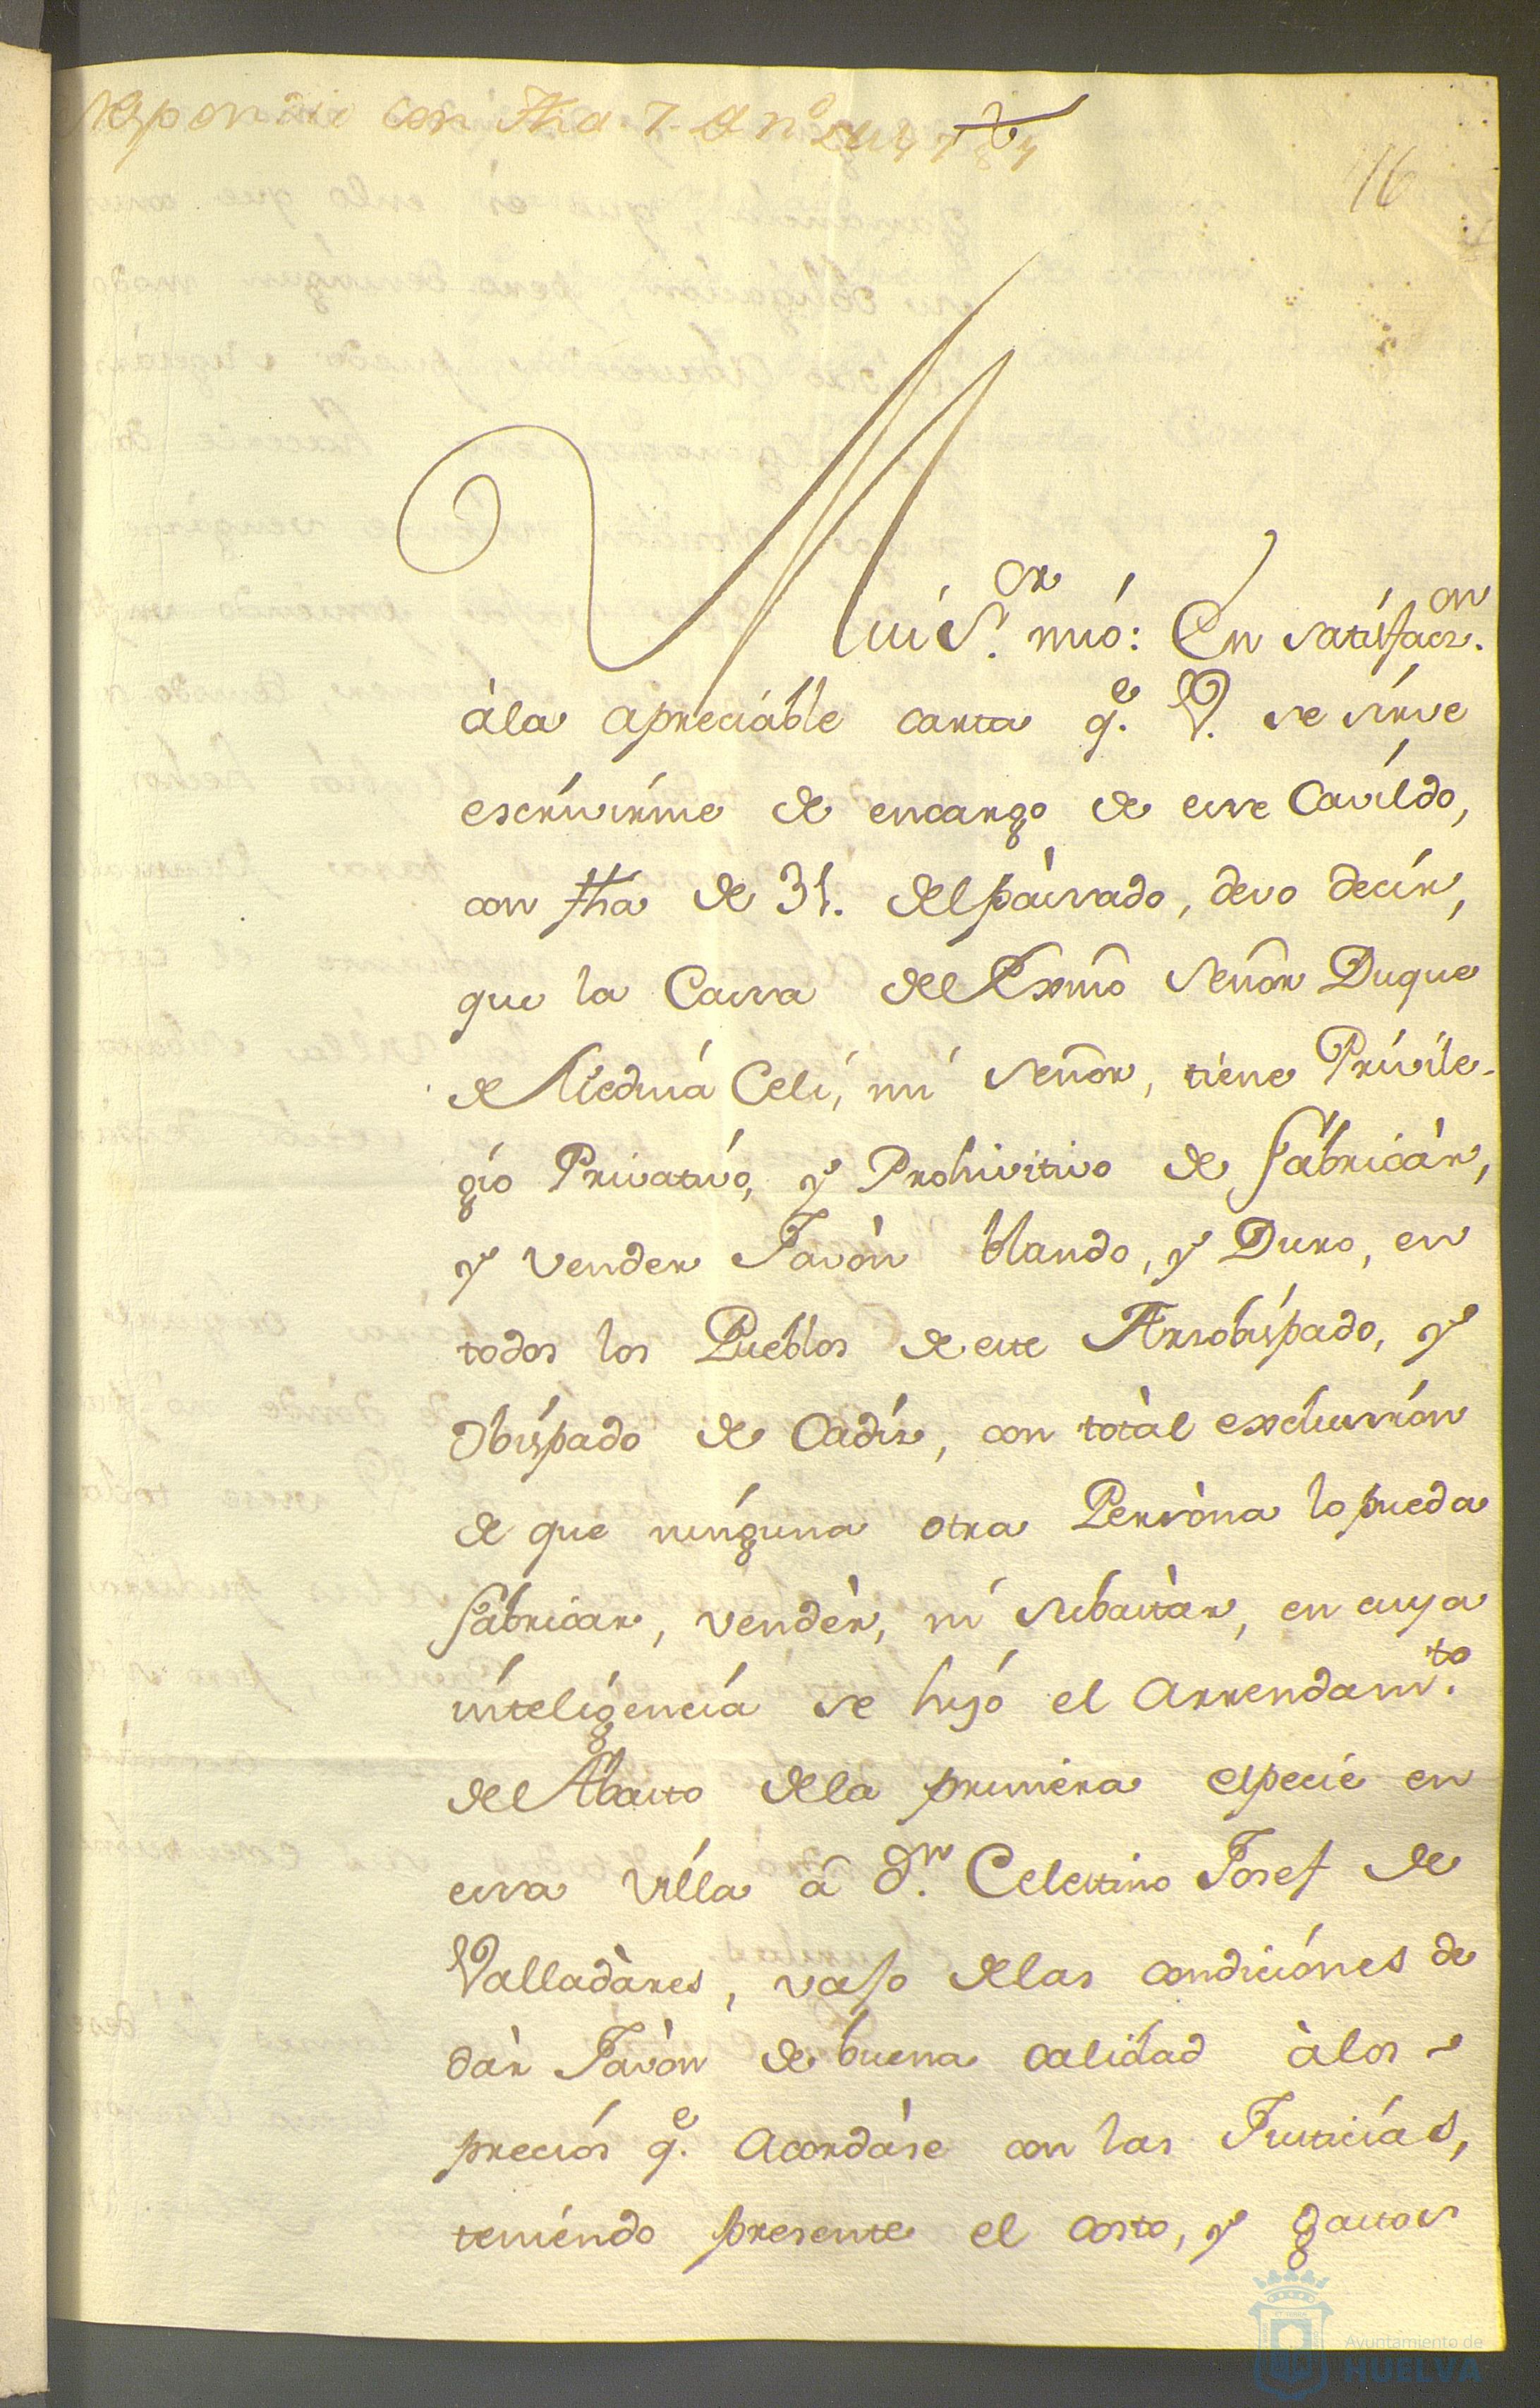 con fha 7 de
16
Mui S.or mio: En satisfacz.on
à la apreciáble carta q.e V. se sirve
escrivirme de encargo de ese Cavildo,
con fha de 31. del pàssado, devo decir,
que la Cassa del Exmô Señor Duque
de Medina Celi, mi Señor, tiene Privile-
gio Privativo, y Prohivitivo de fabricàr,
y vender Javòn blando, y Duro, en
todos los Pueblos de este Arzobispado, y
Obispado de Cadiz, con totàl exclussion
de que ninguna otra Persòna lo pueda
fabricar, vendèr, ni subastàr, en cuya
inteligencia se hizó el arrendam.to
del Abasto de la primera especie en
essa villa â d.n Celestino Josef de
Valladàres, vajo de las condiciónes de
dàr Javòn de buena calidad à los
preciós q.e acordàse con las Justiciàs,
teniendo presente el costo, y gastos
Ayuntamiento de
HUELVA